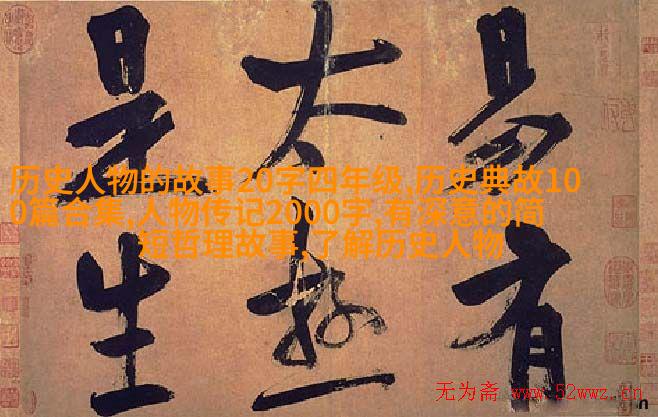 易有
太极
是生
历史人物的故事20字四年级,历史典故10
0篇合集,人物传记2000字,有深意的简
短哲理故事,了解历史人物
无为斋 www.52wwz.cn
n